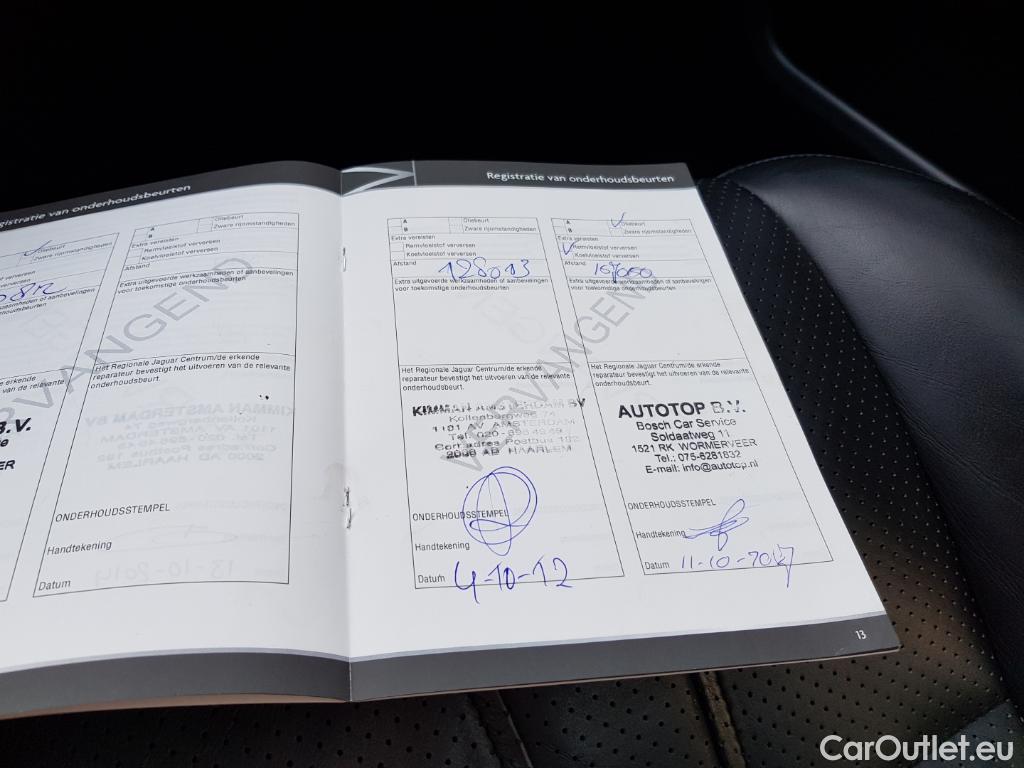 gistratie van onderhoudsbeurten
Oliebeurt
Zware rijomstandigheden
Extra vereisten
Remvloeistof verversen
Koelvloeistof verversen
Afstand
Extra uitgevoerde werkzaamheden of aanbevelingen
voor toekomstige onderhoudsbeurten
VERVANGEND
Het Regionale Jaguar Centrum/de erkende
reparateur bevestigt het uitvoeren van de relevante
onderhoudsbeurt.
B.V.
ONDERHOUDSSTEMPEL
Handtekening
Datum
Registratie van onderhoudsbeurten
A Oliebeurt
B Zware rijomstandigheden
Extra vereisten
Remvloeistof verversen
Koelvloeistof verversen
Afstand
128013
Extra uitgevoerde werkzaamheden of aanbevelingen
voor toekomstige onderhoudsbeurten
Het Regionale Jaguar Centrum/de erkende
reparateur bevestigt het uitvoeren van de relevante
onderhoudsbeurt.
KIMMAN AMSTERDAM BV
1101 AV AMSTERDAM
Corr.adres Postbus 182
HAARLEM
ONDERHOUDSSTEMPEL
Handtekening
Datum 4-10-12
A Oliebeurt
B Zware rijomstandigheden
Extra vereisten
Remvloeistof verversen
Koelvloeistof verversen
Afstand
Extra uitgevoerde werkzaamheden of aanbevelingen
voor toekomstige onderhoudsbeurten
VERVANGEND
Het Regionale Jaguar Centrum/de erkende
reparateur bevestigt het uitvoeren van de relevante
onderhoudsbeurt.
AUTOTOP B.V.
Bosch Car Service
Soldaatweg 11
1521 RK WORMERVEER
Tel.: 075-6281832
E-mail: info@autotop.nl
ONDERHOUDSSTEMPEL
Handtekening
Datum 11-10-2017
13
CarOutlet.eu